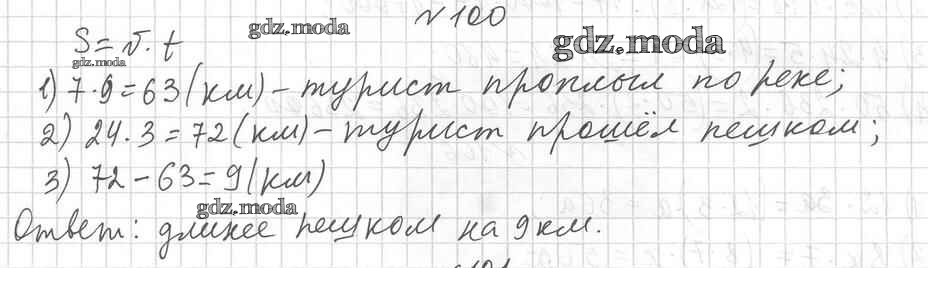 № 100
gdz.moda
S = v · t
gdz.moda
gdz.moda
1) 7 · 9 = 63 (км) – турист проплыл по реке;
2) 24 · 3 = 72 (км) – турист прошёл пешком;
3) 72 – 63 = 9 (км)
gdz.moda
Ответ: длинее пешком на 9 км.